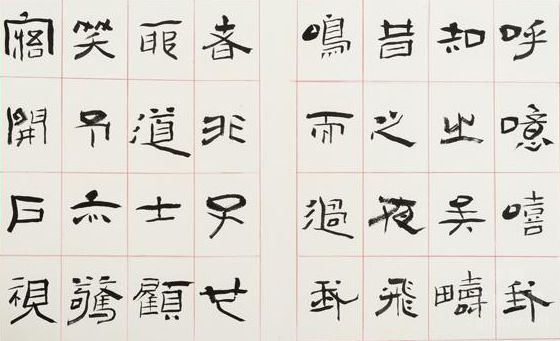 呼噫嘻我
知之矣疇
昔之夜飛
鳴而過我
者非子也
耶道士顧
笑予亦驚
寤開戶視